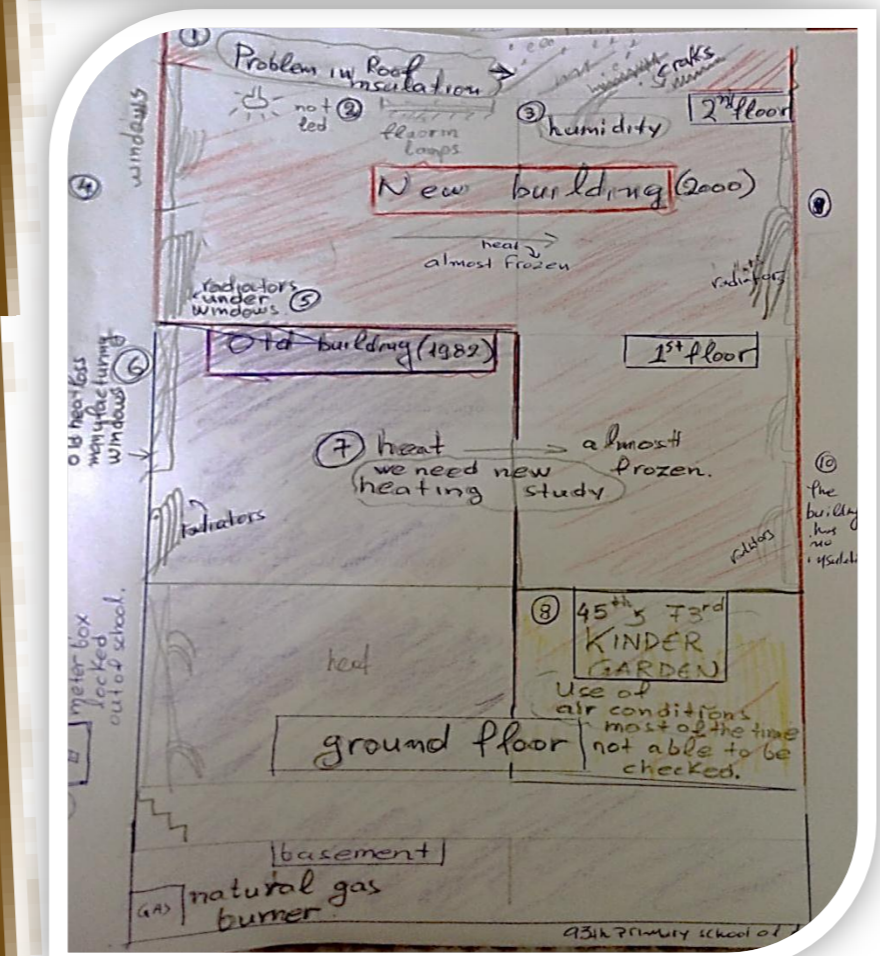 ①
Problem in Roof
insulation
craks
windows
not
led
②
fluorin
lamps
③
humidity
2nd floor
④
New building (2000)
heat
almost frozen
radiators
under
windows
⑤
radiators
old heat loss
manyfacturing
windows
⑥
Old building (1982)
1st floor
⑦ heat
we need new
heating study
almost
frozen.
radiators
⑩
the
building
has
no
meter box
locked
out of school.
heat
⑧
45th 73rd
KINDER
GARDEN
Use of
air conditions
most of the time
not able to be
checked.
ground floor
basement
GAS
natural gas
burner
93th Primary school of